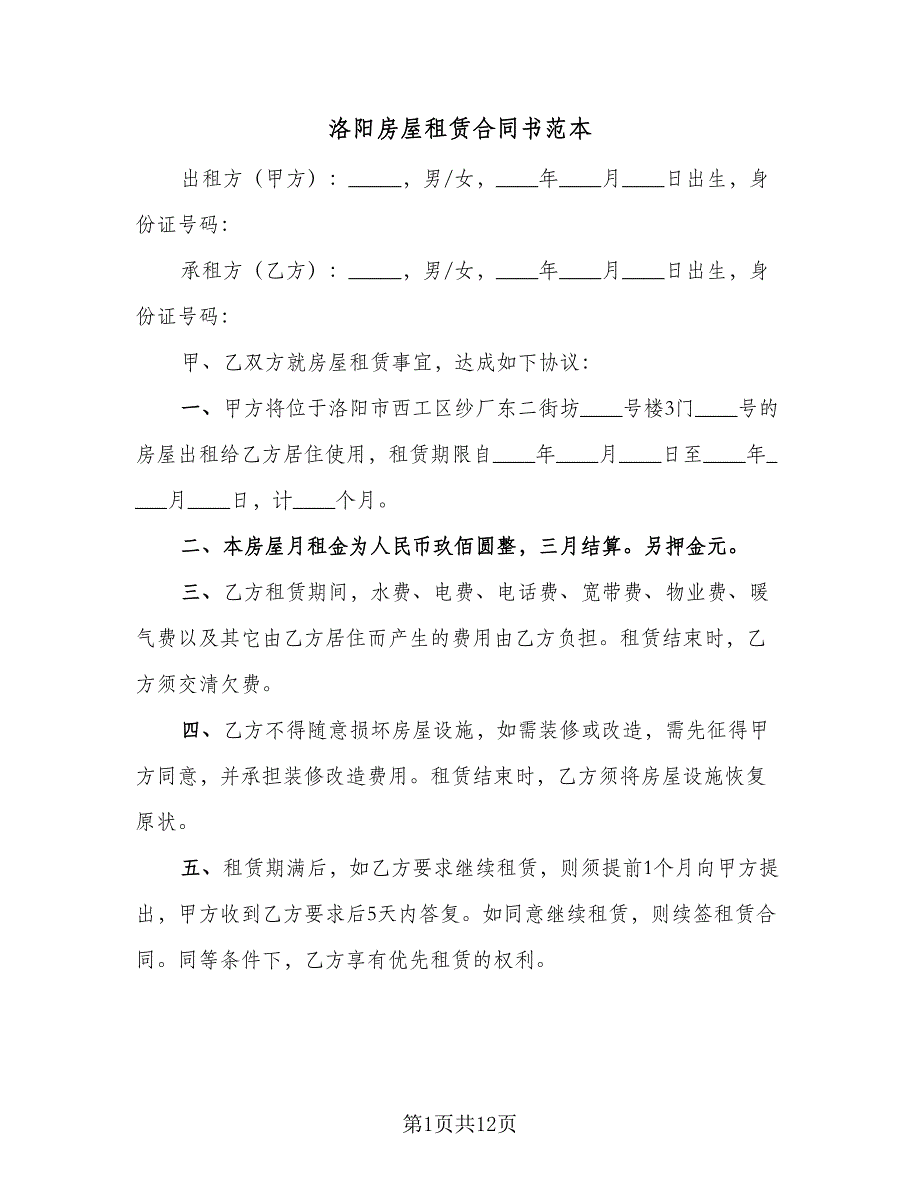 洛阳房屋租赁合同书范本
出租方（甲方）：_____，男/女，____年____月____日出生，身
份证号码：
承租方（乙方）：_____，男/女，____年____月____日出生，身
份证号码：
甲、乙双方就房屋租赁事宜，达成如下协议：
一、甲方将位于洛阳市西工区纱厂东二街坊____号楼3门____号的
房屋出租给乙方居住使用，租赁期限自____年____月____日至____年_
___月____日，计____个月。
二、本房屋月租金为人民币玖佰圆整，三月结算。另押金元。
三、乙方租赁期间，水费、电费、电话费、宽带费、物业费、暖
气费以及其它由乙方居住而产生的费用由乙方负担。租赁结束时，乙
方须交清欠费。
四、乙方不得随意损坏房屋设施，如需装修或改造，需先征得甲
方同意，并承担装修改造费用。租赁结束时，乙方须将房屋设施恢复
原状。
五、租赁期满后，如乙方要求继续租赁，则须提前1个月向甲方提
出，甲方收到乙方要求后5天内答复。如同意继续租赁，则续签租赁合
同。同等条件下，乙方享有优先租赁的权利。
第1页共12页